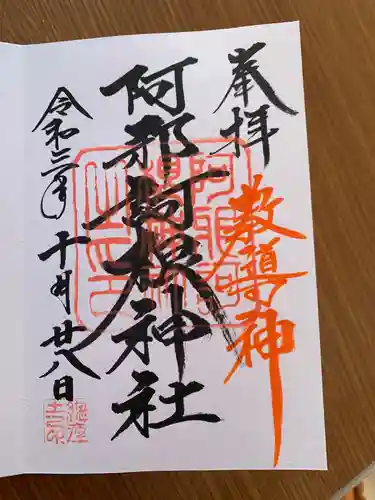 奉拝
教導神
阿邪訶根神社
令和三年十月廿八日